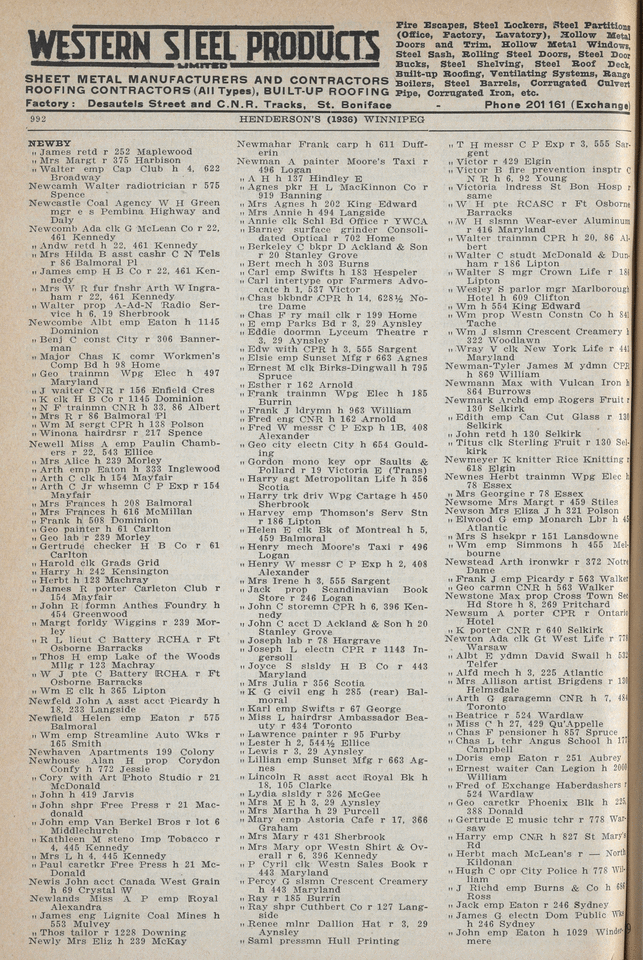 WESTERN STEEL PRODUCTS
LIMITED
SHEET METAL MANUFACTURERS AND CONTRACTORS
ROOFING CONTRACTORS (All Types), BUILT-UP ROOFING
Fire Escapes, Steel Lockers, Steel Partitions
(Office, Factory, Lavatory), Hollow Metal
Doors and Trim, Hollow Metal Windows,
Steel Sash, Rolling Steel Doors, Steel Door
Bucks, Steel Shelving, Steel Roof Deck,
Built-up Roofing, Ventilating Systems, Range
Boilers, Steel Barrels, Corrugated Culvert
Pipe, Corrugated Iron, etc.
Factory: Desautels Street and C.N.R. Tracks, St. Boniface - Phone 201 161 (Exchange)
992 HENDERSON'S (1936) WINNIPEG
NEWBY
" James retd r 252 Maplewood
" Mrs Margt r 375 Harbison
" Walter emp Cap Club h 4, 622
Broadway
Newcamh Walter radiotrician r 575
Spence
Newcastle Coal Agency W H Green
mgr e s Pembina Highway and
Daly
Newcomb Ada clk G McLean Co r 22,
461 Kennedy
" Andw retd h 22, 461 Kennedy
" Mrs Hilda B asst cashr C N Tels
r 86 Balmoral Pl
" James emp H B Co r 22, 461 Ken-
nedy
" Mrs W R fur fnshr Arth W Ingra-
ham r 22, 461 Kennedy
" Walter prop A-Ad-N Radio Ser-
vice h 6, 19 Sherbrook
Newcombe Albt emp Eaton h 1145
Dominion
" Benj C const City r 306 Banner-
man
" Major Chas K comr Workmen's
Comp Bd h 98 Home
" Geo trainmn Wpg Elec h 497
Maryland
" J waiter CNR r 156 Enfield Cres
" K clk H B Co r 1145 Dominion
" N F trainmn CNR h 33, 86 Albert
" Mrs R r 86 Balmoral Pl
" Wm M sergt CPR h 138 Polson
" Winona hairdrsr r 217 Spence
Newell Miss A emp Paulin Chamb-
ers r 22, 543 Ellice
" Mrs Alice h 239 Morley
" Arth emp Eaton h 333 Inglewood
" Arth C clk h 154 Mayfair
" Arth C Jr whsemn C P Exp r 154
Mayfair
" Mrs Frances h 208 Balmoral
" Mrs Frances h 616 McMillan
" Frank h 508 Dominion
" Geo painter h 61 Carlton
" Geo lab r 239 Morley
" Gertrude checker H B Co r 61
Carlton
" Harold clk Grads Grid
" Harry h 242 Kensington
" Herbt h 123 Machray
" James R porter Carleton Club r
154 Mayfair
" John R formn Anthes Foundry h
454 Greenwood
" Margt forldy Wiggins r 239 Mor-
ley
" R L lieut C Battery RCHA r Ft
Osborne Barracks
" Thos H emp Lake of the Woods
Mllg r 123 Machray
" W J pte C Battery RCHA r Ft
Osborne Barracks
" Wm E clk h 365 Lipton
Newfeld John A asst acct Picardy h
18, 233 Langside
Newfield Helen emp Eaton r 575
Balmoral
" Wm emp Streamline Auto Wks r
165 Smith
Newhaven Apartments 199 Colony
Newhouse Alan H prop Corydon
Confy h 772 Jessie
" Cory with Art Photo Studio r 21
McDonald
" John h 419 Jarvis
" John shpr Free Press r 21 Mac-
donald
" John emp Van Berkel Bros r lot 6
Middlechurch
" Kathleen M steno Imp Tobacco r
4, 445 Kennedy
" Mrs L h 4, 445 Kennedy
" Paul caretkr Free Press h 21 Mc-
Donald
Newis John acct Canada West Grain
h 69 Crystal W
Newlands Miss A P emp Royal
Alexandra
" James eng Lignite Coal Mines h
553 Mulvey
" Thos tailor r 1228 Downing
Newly Mrs Eliz h 239 McKay
Newmahar Frank carp h 611 Duff-
erin
Newman A painter Moore's Taxi r
496 Logan
" A H h 137 Hindley E
" Agnes pkr H L MacKinnon Co r
919 Banning
" Mrs Agnes h 202 King Edward
" Mrs Annie h 494 Langside
" Annie clk Schl Bd Office r YWCA
" Barney surface grinder Consoli-
dated Optical r 702 Home
" Berkeley C bkpr D Ackland & Son
r 20 Stanley Grove
" Bert mech h 303 Burns
" Carl emp Swifts h 183 Hespeler
" Carl intertype opr Farmers Advo-
cate h 1, 537 Victor
" Chas bkbndr CPR h 14, 628½ No-
tre Dame
" Chas F ry mail clk r 199 Home
" E emp Parks Bd r 3, 29 Aynsley
" Eddie doormn Lyceum Theatre r
3, 29 Aynsley
" Edw with CPR h 3, 555 Sargent
" Elsie emp Sunset Mfg r 663 Agnes
" Ernest M clk Birks-Dingwall h 795
Spruce
" Esther r 162 Arnold
" Frank trainmn Wpg Elec h 185
Burrin
" Frank J ldrymn h 963 William
" Fred eng CNR h 162 Arnold
" Fred W messr C P Exp h 1B, 408
Alexander
" Geo city electn City h 654 Gould-
ing
" Gordon mono key opr Saults &
Pollard r 19 Victoria E (Trans)
" Harry agt Metropolitan Life h 356
Scotia
" Harry trk driv Wpg Cartage h 450
Sherbrook
" Harvey emp Thomson's Serv Stn
r 186 Lipton
" Helen E clk Bk of Montreal h 5,
459 Balmoral
" Henry mech Moore's Taxi r 496
Logan
" Henry W messr C P Exp h 2, 408
Alexander
" Mrs Irene h 3, 555 Sargent
" Jack prop Scandinavian Book
Store r 246 Logan
" John C storemn CPR h 6, 396 Ken-
nedy
" John C acct D Ackland & Son h 20
Stanley Grove
" Joseph lab r 78 Hargrave
" Joseph L electn CPR r 1143 In-
gersoll
" Joyce S slsldy H B Co r 443
Maryland
" Mrs Julia r 356 Scotia
" K G civil eng h 285 (rear) Bal-
moral
" Karl emp Swifts r 67 George
" Miss L hairdrsr Ambassador Beau-
ty r 434 Toronto
" Lawrence painter r 95 Furby
" Lester h 2, 544½ Ellice
" Lewis r 3, 29 Aynsley
" Lillian emp Sunset Mfg r 663 Ag-
nes
" Lincoln R asst acct Royal Bk h
18, 105 Clarke
" Lydia slsldy r 326 McGee
" Mrs M E h 3, 29 Aynsley
" Mrs Martha h 29 Purcell
" Mary emp Astoria Cafe r 17, 366
Graham
" Mrs Mary r 431 Sherbrook
" Mrs Mary opr Westn Shirt & Ov-
erall r 6, 396 Kennedy
" P Cyril clk Westn Sales Book r
443 Maryland
" Percy G slsmn Crescent Creamery
h 443 Maryland
" Ray r 185 Burrin
" Ray shpr Cuthbert Co r 127 Lang-
side
" Renee mlnr Dallion Hat r 3, 29
Aynsley
" Saml pressmn Hull Printing
" T H messr C P Exp r 3, 555 Sar-
gent
" Victor r 429 Elgin
" Victor B fire prevention insptr C
N R h 6, 92 Young
" Victoria lndress St Bon Hosp r
same
" W H pte RCASC r Ft Osborne
Barracks
" W H slsmn Wear-ever Aluminum
r 416 Maryland
" Walter trainmn CPR h 20, 86 Al-
bert
" Walter C studt McDonald & Dun-
ham r 186 Lipton
" Walter S mgr Crown Life r 186
Lipton
" Wesley S parlor mgr Marlborough
Hotel h 609 Clifton
" Wm h 554 King Edward
" Wm prop Westn Constn Co h 841
Tache
" Wm J slsmn Crescent Creamery h
322 Woodlawn
" Wray Y clk New York Life r 443
Maryland
Newman-Tyler James M ydmn CPR
h 869 William
Newmann Max with Vulcan Iron h
864 Burrows
Newmark Archd emp Rogers Fruit r
130 Selkirk
" Edith emp Can Cut Glass r 130
Selkirk
" John retd h 130 Selkirk
" Titus clk Sterling Fruit r 130 Sel-
kirk
Newmeyer K knitter Rice Knitting r
618 Elgin
Newnes Herbt trainmn Wpg Elec h
78 Essex
" Mrs Georgine r 78 Essex
Newsome Mrs Margt r 459 Stiles
Newson Mrs Eliza J h 321 Polson
" Elwood G emp Monarch Lbr h 45
Atlantic
" Mrs S hsekpr r 151 Lansdowne
" Wm emp Simmons h 455 Mel-
bourne
Newstead Arth ironwkr r 372 Notre
Dame
" Frank J emp Picardy r 563 Walker
" Geo carmn CNR h 563 Walker
Newstone Max prop Cross Town Sec
Hd Store h 8, 269 Pritchard
Newsum A porter CPR r Ontario
Hotel
" K porter CNR r 640 Selkirk
Newton Ada clk Gt West Life r 778
Warsaw
" Albt E ydmn David Swail h 532
Telfer
" Alfd mech h 3, 225 Atlantic
" Mrs Allison artist Brigdens r 130
Helmsdale
" Arth G garagemn CNR h 7, 484
Toronto
" Beatrice r 524 Wardlaw
" Miss C h 27, 429 Qu'Appelle
" Chas F pensioner h 857 Spruce
" Chas L tchr Angus School h 177
Campbell
" Doris emp Eaton r 251 Aubrey
" Ernest waiter Can Legion h
William
" Fred of Exchange Haberdashers r
524 Wardlaw
" Geo caretkr Phoenix Blk h 225,
388 Donald
" Gertrude E music tchr r 778 War-
saw
" Harry emp CNR h 827 St Mary's
Rd
" Herbt mach McLean's r — North
Kildonan
" Hugh C opr City Police h 778 Wil-
liam
" J Richd emp Burns & Co h 686
Ross
" Jack emp Eaton r 246 Sydney
" James G electn Dom Public Wks
h 246 Sydney
" John emp Eaton h 1029 Winder-
mere